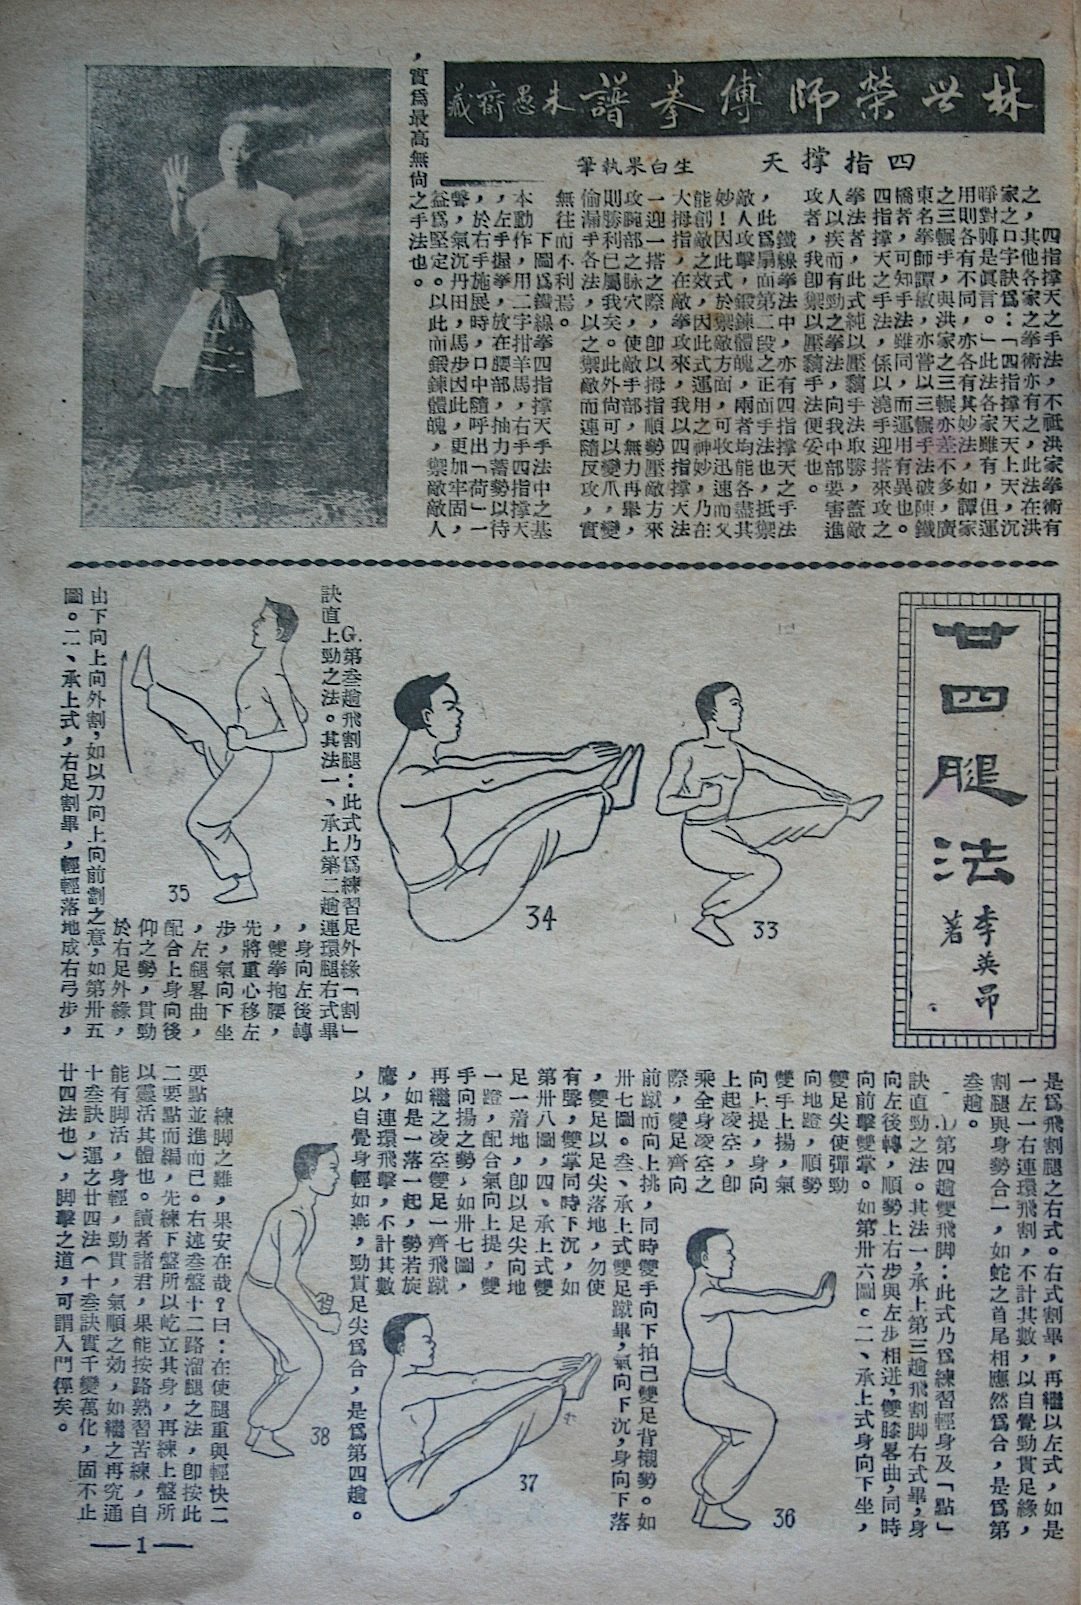 林世榮師傅拳譜 朱愚齋藏
四指撐天 生白果執筆
四指撐天之手法，不祗洪家拳術有
之，其他各家之拳術亦有之，此法在洪
家之口字訣爲：「四指撐天天上天，沉
睜對膊是眞言。」此法各家雖有，但運
用則各有不同，亦各有其妙法，如譚家
之三輾手，與洪家之三輾亦差不多，廣
東名拳師譚敏，亦嘗以三輾手法破陳鐵
橋者，可知手法雖同，而運用有異也。
四指撐天之手法，係以澆手迎搭來攻之
拳法者，此式純以壓翳手法取勝，蓋敵
人以疾而有勁之拳法，向我中部要害進
攻者，我卽禦以壓翳手法便妥也。
鐵線拳法中，亦有四指撐天之手法
，此爲扇面第二段之正面手法也，抵禦
敵人攻擊，鍛鍊體魄，兩者均能各盡其
妙！因此式於禦敵方面，可收迅速而又
能創敵之效，因此式運用之神妙，乃在
大拇指，在敵拳攻來，我以四指撐天法
一迎一搭之際，卽以拇指順勢壓敵方來
攻腕部之脉穴，使敵手部，無力再舉，
則勝利已屬我矣。此外尙可以變爪，變
偷漏手各法，以之禦敵而連隨反攻，實
無往而不利焉。
下圖爲鐵線拳四指撐天手法中之基
本動作，用二字拑羊馬，右手四指撐天
，左手握拳，放在腰部，抽力蓄勢以待
，於右手施展時，口中隨呼出「荷」一
聲，氣沉丹田，馬步因此，更加牢固，
益爲堅定。以此而鍛鍊體魄，禦敵敵人
，實爲最高無尙之手法也。
廿四腿法
李英昂著
33
34
G.第叁趟飛割腿：此式乃爲練習足外緣「割」
訣直上勁之法。其法一、承上第二趟連環腿右式畢
，身向左後轉
，雙拳抱腰，
先將重心移左
步，氣向下坐
，左腿畧曲，
配合上身向後
仰之勢，貫勁
於右足外緣，
由下向上向外割，如以刀向上向前劃之意，如第卅五
圖。二、承上式，右足割畢，輕輕落地成右弓步，
35
是爲飛割腿之右式。右式割畢，再繼以左式，如是
一左一右連環飛割，不計其數，以自覺勁貫足緣，
割腿與身勢合一，如蛇之首尾相應然爲合，是爲第
叁趟。
第四趟雙飛脚：此式乃爲練習輕身及「點」
訣直勁之法。其法一，承上第三趟飛割脚右式畢，身
向左後轉，順勢上右步與左步相迸，雙膝畧曲，同時
向前擊雙掌。如第卅六圖。二、承上式身向下坐，
雙足尖使彈勁
向地蹬，順勢
雙手上揚，氣
向上提，身向
上起凌空，卽
乘全身凌空之
際，雙足齊向
前蹴而向上挑，同時雙手向下拍己雙足背襯勢。如
卅七圖。叁、承上式雙足蹴畢，氣向下沉，身向下落
，雙足以足尖落地，勿使
有聲，雙掌同時下沉，如
第卅八圖，四、承上式雙
足一着地，卽以足尖向地
一蹬，配合氣向上提，雙
手向揚之勢，如卅七圖，
再繼之凌空雙足一齊飛蹴
，如是一落一起，勢若旋
鷹，連環飛擊，不計其數
，以自覺身輕如燕，勁貫足尖爲合，是爲第四趟。
36
37
38
練脚之難，果安在哉？曰：在使腿重與輕快二
要點並進而已。右述叁盤十二路溜腿之法，卽按此
二要點而編，先練下盤所以屹立其身，再練上盤所
以靈活其體也。讀者諸君，果能按路熟習苦練，自
能有脚活，身輕，勁貫，氣順之効，如繼之再究通
十叁訣，運之廿四法（十叁訣實千變萬化，固不止
廿四法也），脚擊之道，可謂入門徑矣。
—1—